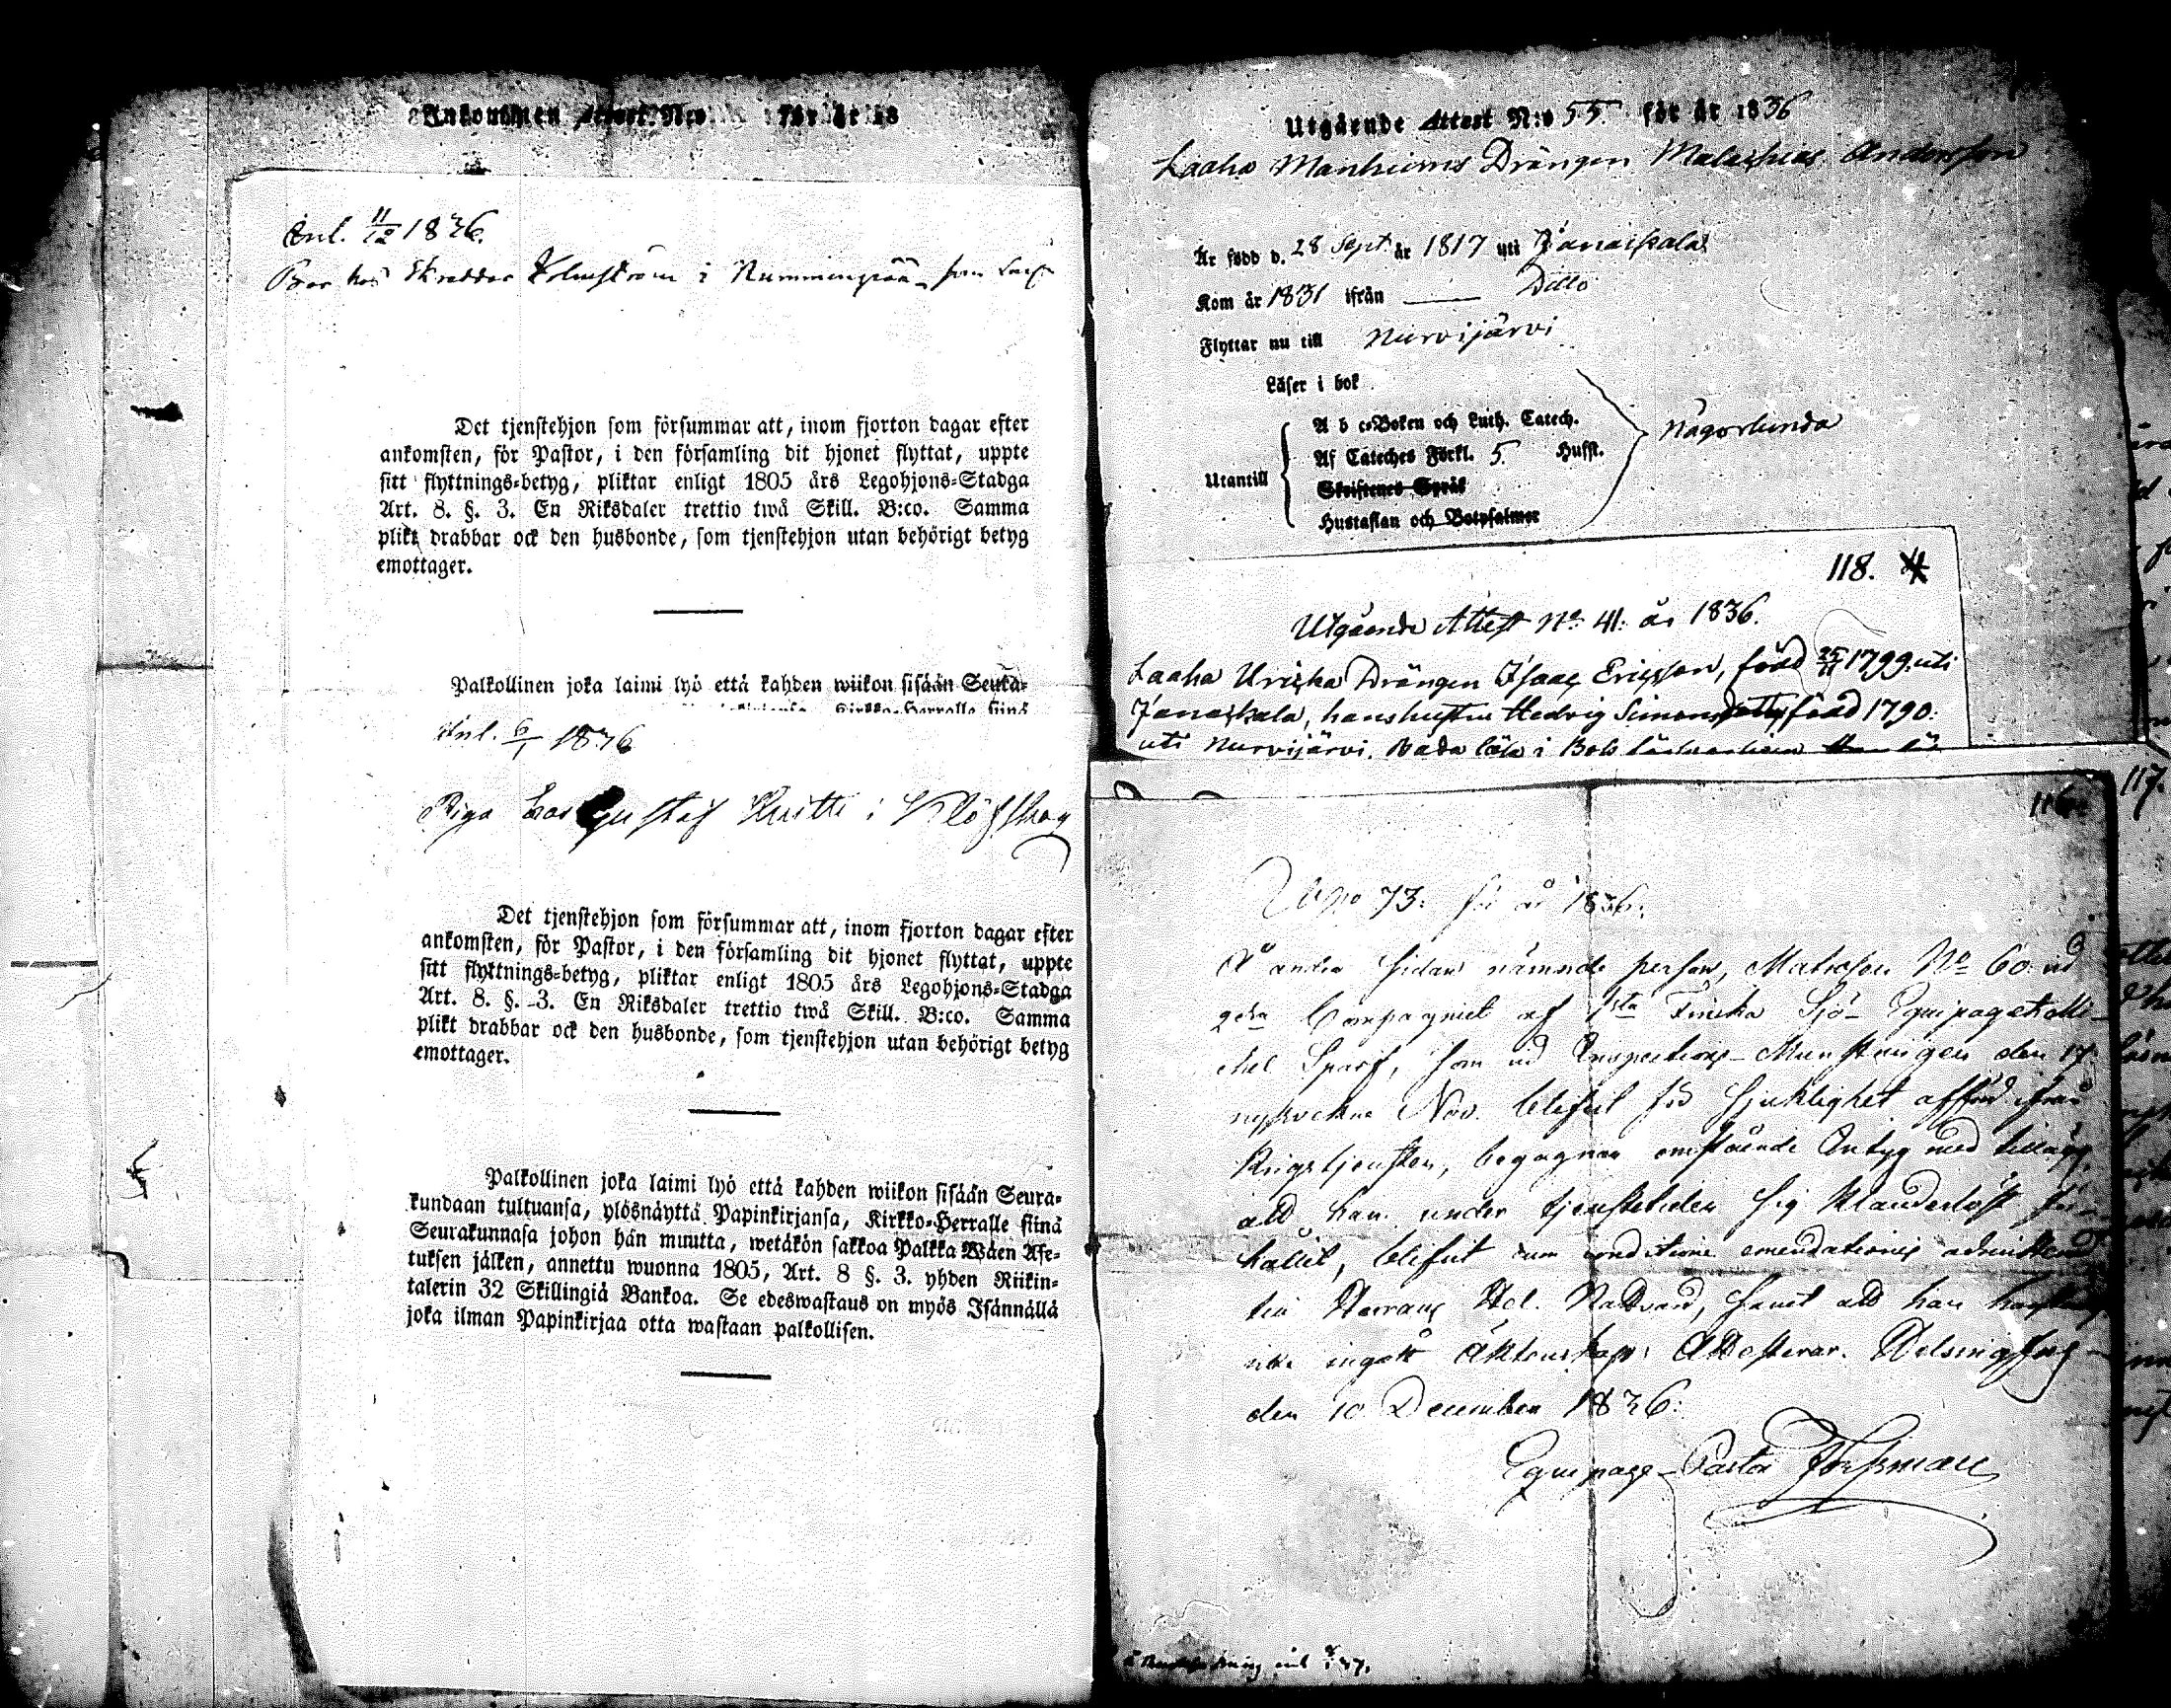 Inkommen Attest N:o för år 18
Inl. 11/12 1836.
Bor hos Skräddar Holmström i Nummenpää
Det tjenstehjon som försummar att, inom fjorton dagar efter
ankomsten, för Pastor, i den församling dit hjonet flyttat, uppte
sitt flyttnings-betyg, pliktar enligt 1805 års Legohjons-Stadga
Art. 8. §. 3. En Riksdaler trettio twå Skill. B:co. Samma
plikt drabbar ock den husbonde, som tjenstehjon utan behörigt betyg
emottager.
Palkollinen joka laimi lyö että kahden wiikon sisään Seura-
Inl. 6/1 1836
Piga hos Gustaf i
Det tjenstehjon som försummar att, inom fjorton dagar efter
ankomsten, för Pastor, i den församling dit hjonet flyttat, uppte
sitt flyttnings-betyg, pliktar enligt 1805 års Legohjons-Stadga
Art. 8. §. 3. En Riksdaler trettio twå Skill. B:co. Samma
plikt drabbar ock den husbonde, som tjenstehjon utan behörigt betyg
emottager.
Palkollinen joka laimi lyö että kahden wiikon sisään Seura-
kundaan tultuansa, ylösnäyttä Papinkirjansa, Kirkko-Herralle siinä
Seurakunnasa johon hän muutta, wetäkön sakkoa Palkka Wäen Ase-
tuksen jälken, annettu wuonna 1805, Art. 8 §. 3. yhden Riikin-
talerin 32 Skillingiä Bankoa. Se edeswastaus on myös Isännällä
joka ilman Papinkirjaa otta wastaan palkollisen.
Utgående Attest N:o 55. för år 1836
Laaha Manhiems Drängen Malachias Andersson
Är född d. 28 Sept. år 1817 uti Janakkala
Kom år 1831 ifrån Ditto
Flyttar nu till Nurvijärvi
Läser i bok
A b c-Boken och Luth. Catech.
Af Cateches Förkl. 5. Husst.
Utantill
Skriftenes Språk
Hustaflan och Botpsalmer
Någorlunda
118.
Utgående Attest No 41: år 1836.
Laaha Uricka Drängen Isaac Ericsson, född 25/11 1799. uti
Janackala, hans hustru Hedvig Simonsdotter född 1790:
uti Nurvijärvi. Båda läsa i Bok
117.
116
No 73: för år 1836.
Å andra sidan nämnde person, Matrosen No 60 vid
2dra Compagniet af 1sta Finska Sjö-Equipaget
Sparf, som vid Inspections-Munstringen den 17
Nov. blifvit för sjuklighet afförd ifrån
Krigstjensten, begagnar omstående Intyg med tillägg,
att han under tjenstetiden sig klanderlöst för-
hållit, blifvit sub conditione emendationis admitterad
till Herrans Hel. Nattvard, samt att han
icke ingått Äktenskap: Attesterar. Helsingfors
den 10 December 1836:
Equipage-Pastor Forsman